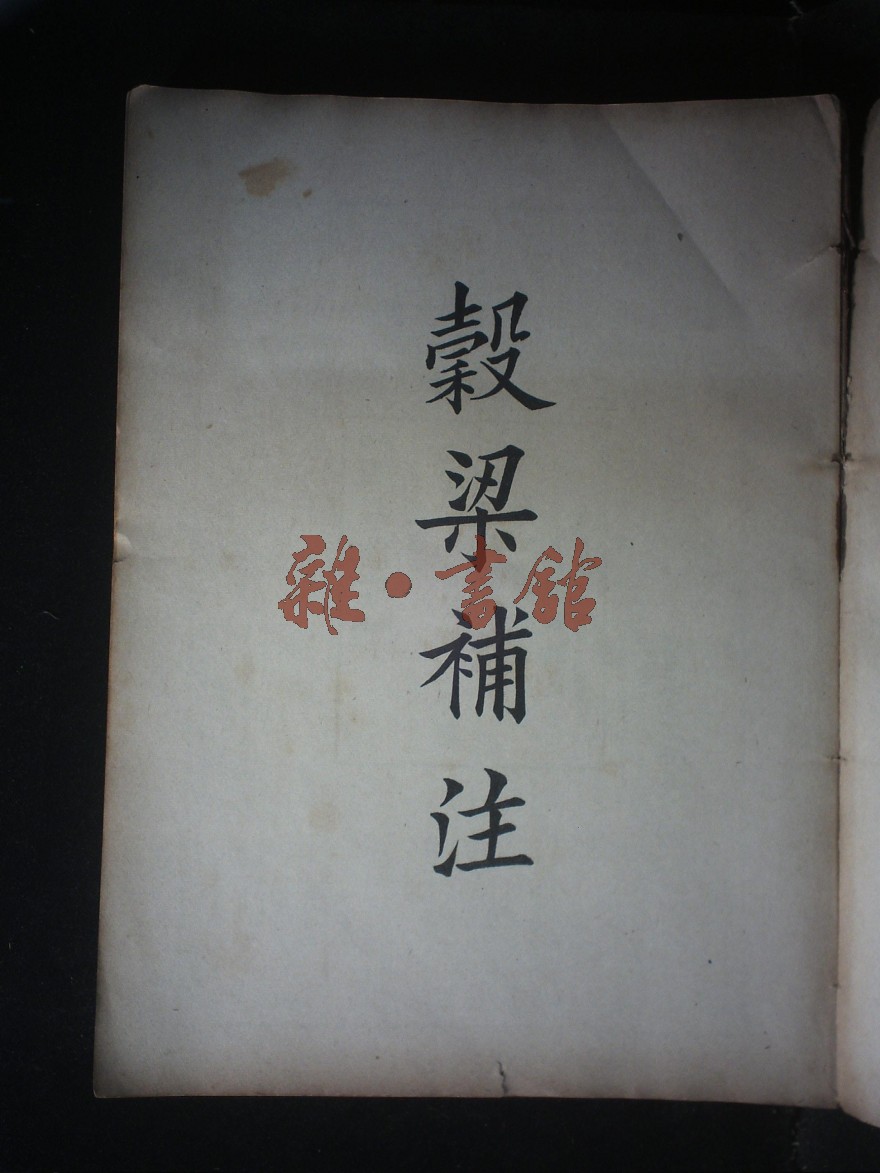 穀梁補注
雜·書館